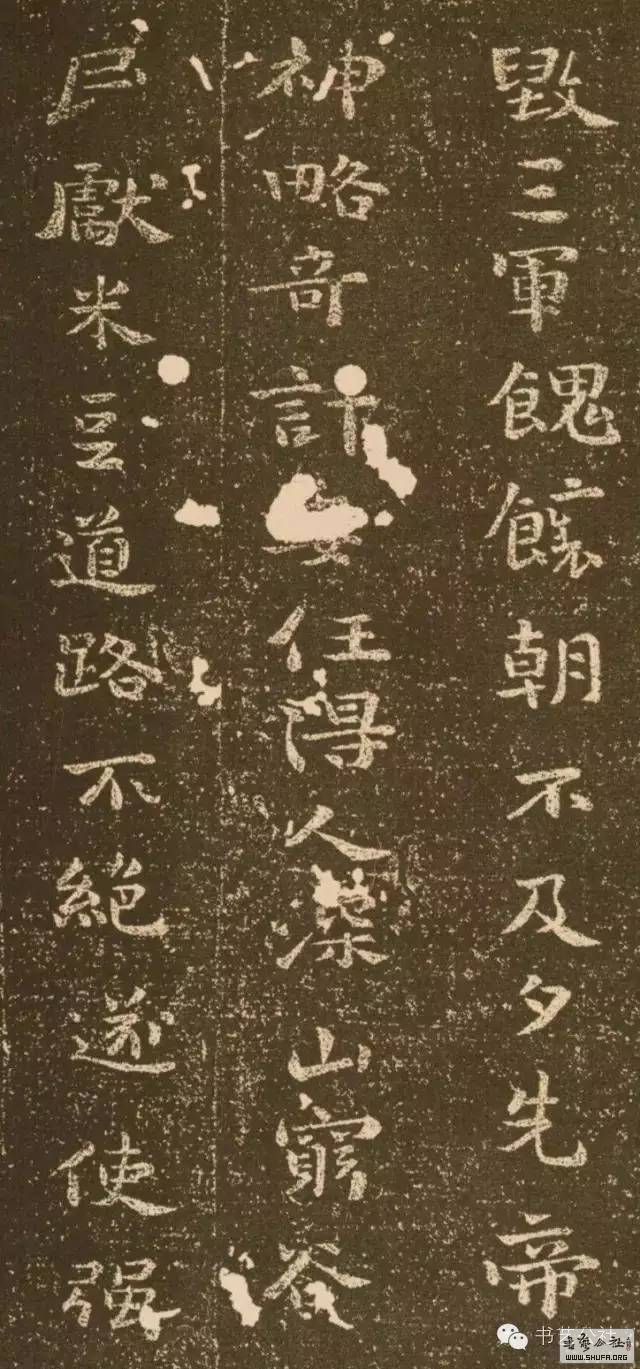 毀三軍餽饟朝不及夕先帝
神略奇計委任得人深山窮谷
民獻米豆道路不絕遂使强
书艺公社
書藝公社
WWW.SHUFA.ORG